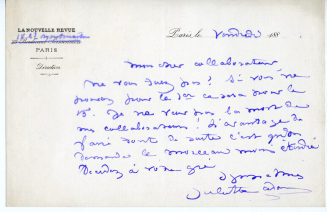 LA NOUVELLE REVUE
PARIS
Direction
Paris, le vendredi 188
mon cher collaborateur
ne vous tuez pas ! Si vous ne
pouvez pour le 1er ce sera pour le
15. Je ne veux pas la mort de
mes collaborateurs ! L'avantage de
faire de suite c'est qu'on
demande le morceau moins
Décidez à votre gré
Juliette Adam